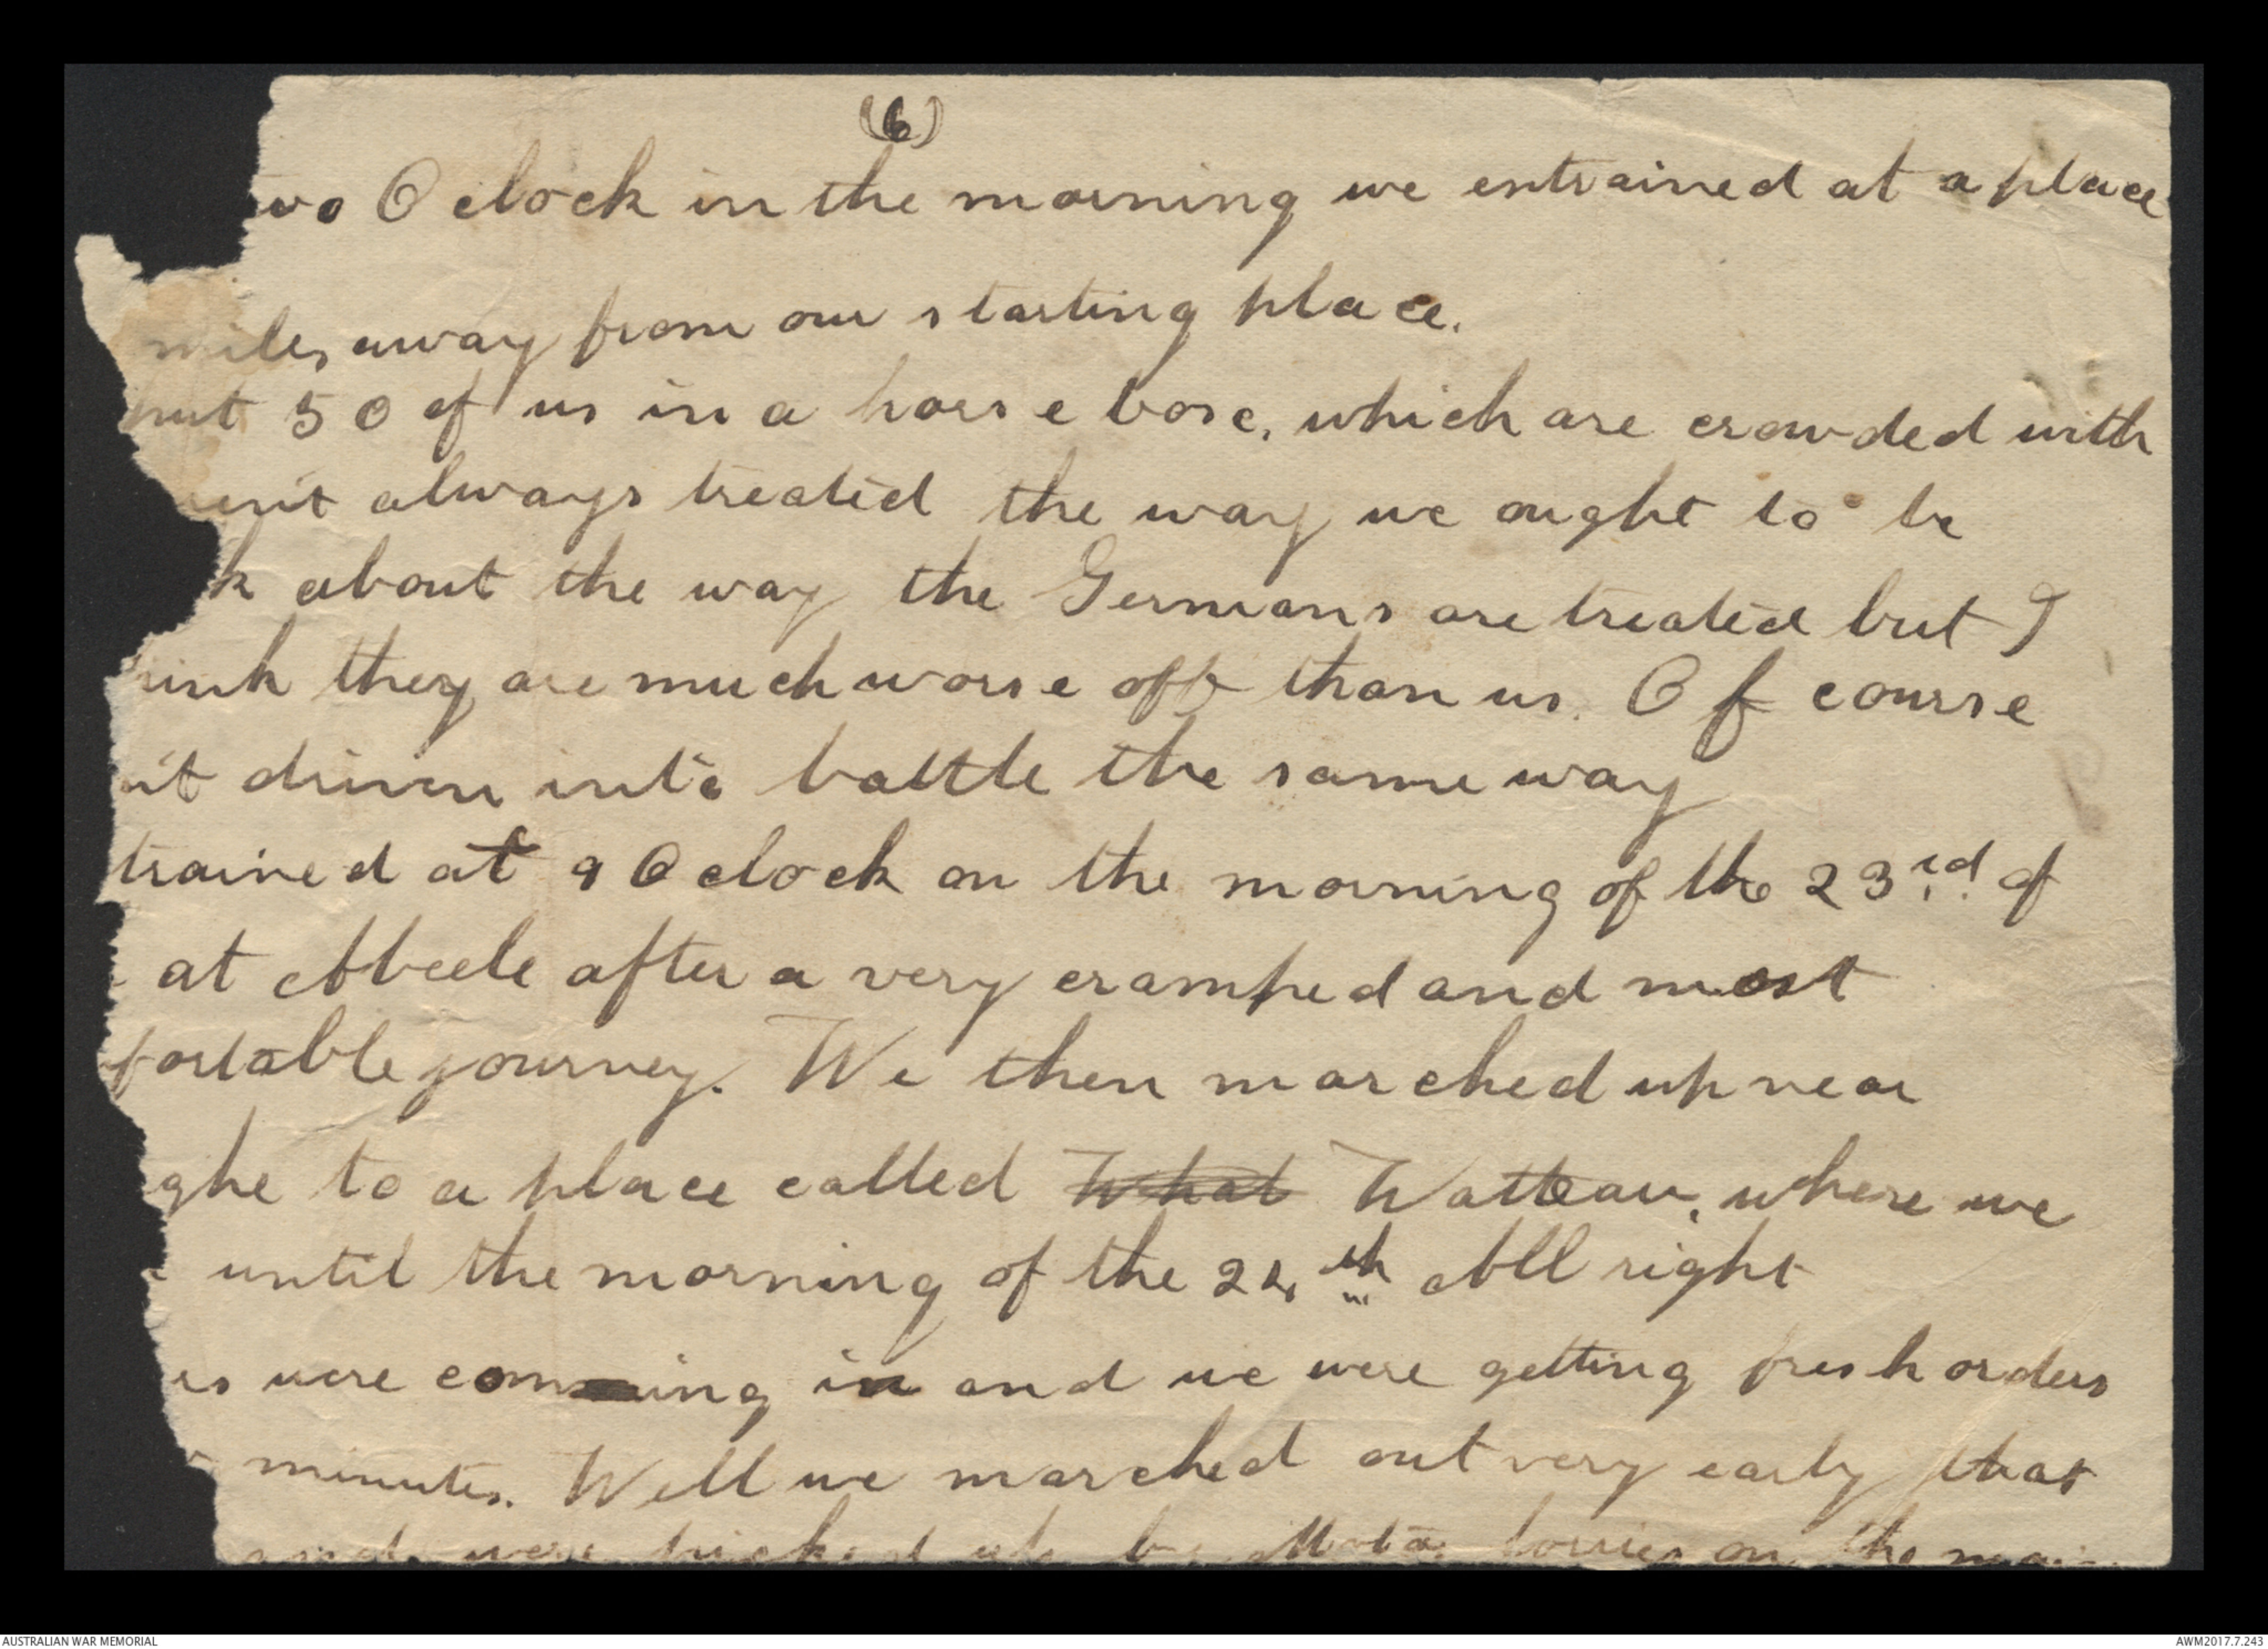 (6)
wo O clock in the morning we entrained at a place
miles away from our starting place.
put 50 of us in a horse box, which are crowded with
ent always treated the way we ought to be
k about the way the Germans are treated but I
hink they are much worse off than us. Of course
nt driven into battle the same way
trained at 9 O clock on the morning of the 23rd of
at Abeele after a very cramped and most
fortable journey. We then marched up near
ghe to a place called What Watteau, where we
until the morning of the 24th All right
es were coming in and we were getting fresh orders
minutes. Well we marched out very early that
and were picked up by Motor lorries on the main
AUSTRALIAN WAR MEMORIAL
AWM2017.7.243